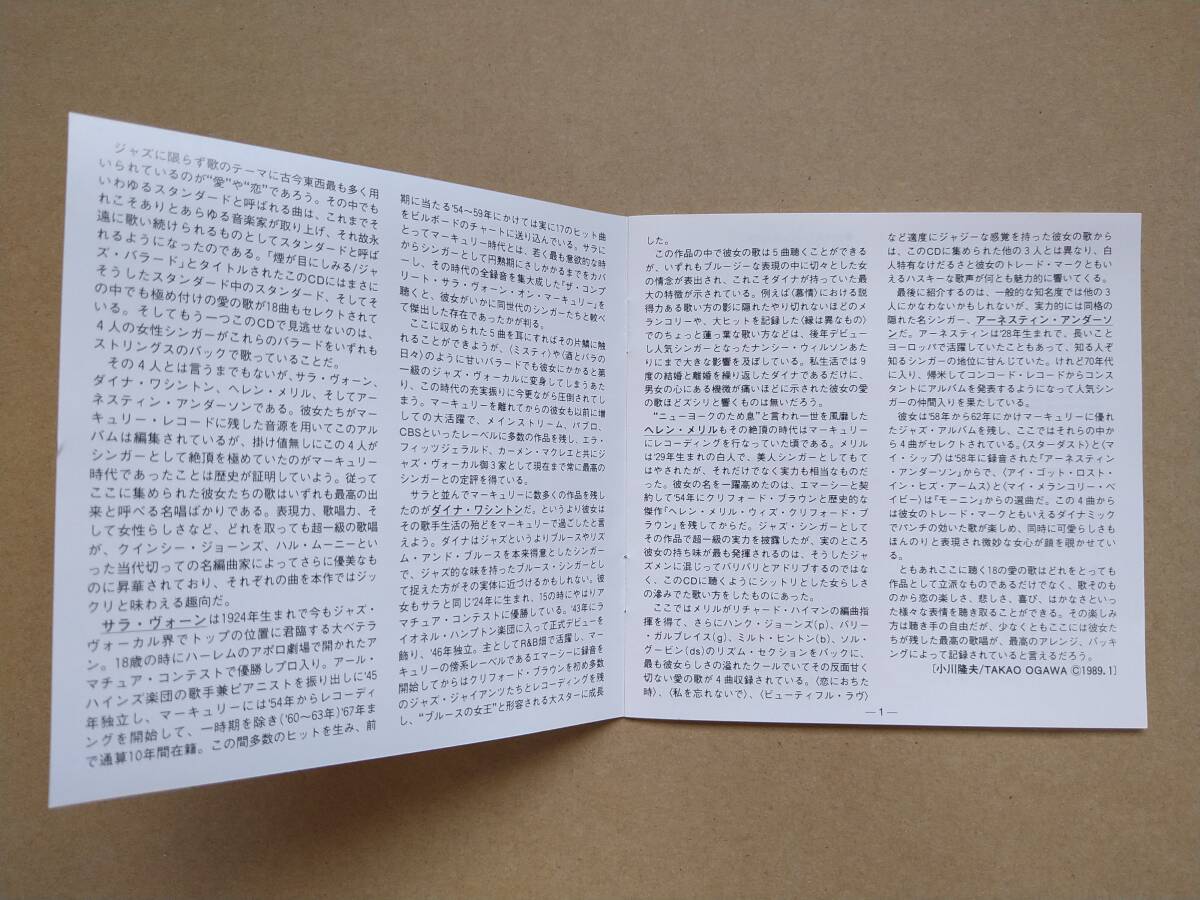 ジャズに限らず歌のテーマに古今東西最も多く用
いられているのが“愛”や“恋”であろう。その中でも
いわゆるスタンダードと呼ばれる曲は、これまでそ
れこそありとあらゆる音楽家が取り上げ、それ故永
遠に歌い続けられるものとしてスタンダードと呼ば
れるようになったのである。「煙が目にしみる/ジャ
ズ・バラード」とタイトルされたこのCDにはまさに
そうしたスタンダード中のスタンダード、そしてそ
の中でも極め付けの愛の歌が18曲もセレクトされて
いる。そしてもう一つこのCDで見逃せないのは、
4人の女性シンガーがこれらのバラードをいずれも
ストリングスのバックで歌っていることだ。
その4人とは言うまでもないが、サラ・ヴォーン、
ダイナ・ワシントン、ヘレン・メリル、そしてアー
ネスティン・アンダーソンである。彼女たちがマー
キュリー・レコードに残した音源を用いてこのアル
バムは編集されているが、掛け値無しにこの4人が
シンガーとして絶頂を極めていたのがマーキュリー
時代であったことは歴史が証明していよう。従って
ここに集められた彼女たちの歌はいずれも最高の出
来と呼べる名唱ばかりである。表現力、歌唱力、そ
して女性らしさなど、どれを取っても超一級の歌唱
が、クインシー・ジョーンズ、ハル・ムーニーとい
った当代切っての名編曲家によってさらに優美なも
のに昇華されており、それぞれの曲を本作ではジッ
クリと味わえる趣向だ。
サラ・ヴォーンは1924年生まれで今もジャズ・
ヴォーカル界でトップの位置に君臨する大ベテラ
ン。18歳の時にハーレムのアポロ劇場で開かれたア
マチュア・コンテストで優勝しプロ入り。アール・
ハインズ楽団の歌手兼ピアニストを振り出しに'45
年独立し、マーキュリーには'54年からレコーディ
ングを開始して、一時期を除き('60〜63年)'67年ま
で通算10年間在籍。この間多数のヒットを生み、前
期に当たる'54〜59年にかけては実に17のヒット曲
をビルボードのチャートに送り込んでいる。サラに
とってマーキュリー時代とは、若く最も意欲的な時
からシンガーとして円熟期にさしかかるまでをカバ
ーし、その時代の全録音を集大成した「ザ・コンプ
リート・サラ・ヴォーン・オン・マーキュリー」を
聴くと、彼女がいかに同世代のシンガーたちと較べ
て傑出した存在であったかが判る。
ここに収められた5曲を耳にすればその片鱗に触
れることができようが、〈ミスティ〉や〈酒とバラの
日々〉のように甘いバラードでも彼女にかかると第
一級のジャズ・ヴォーカルに変身してしまうあた
り、この時代の充実振りに今更ながら圧倒されてし
まう。マーキュリーを離れてからの彼女も以前に増
しての大活躍で、メインストリーム、パブロ、
CBSといったレーベルに多数の作品を残し、エラ・
フィッツジェラルド、カーメン・マクレエと共にジ
ャズ・ヴォーカル御3家として現在まで常に最高の
シンガーとの定評を得ている。
サラと並んでマーキュリーに数多くの作品を残し
たのがダイナ・ワシントンだ。というより彼女は
その歌手生活の殆どをマーキュリーで過ごしたと言
えよう。ダイナはジャズというよりブルースやリズ
ム・アンド・ブルースを本来得意としたシンガー
で、ジャズ的な味を持ったブルース・シンガーとし
て捉えた方がその実体に近づけるかもしれない。彼
女もサラと同じ'24年に生まれ、15の時にやはりア
マチュア・コンテストに優勝している。'43年にラ
イオネル・ハンプトン楽団に入って正式デビューを
飾り、'46年独立。主としてR&B畑で活躍し、マー
キュリーの傍系レーベルであるエマーシーに録音を
開始してからはクリフォード・ブラウンを初め多数
のジャズ・ジャイアンツたちとレコーディングを残
し、“ブルースの女王”と形容される大スターに成長
した。
この作品の中で彼女の歌は5曲聴くことができる
が、いずれもブルージーな表現の中に切々とした女
の情念が表出され、これこそダイナが持っていた最
大の特徴が示されている。例えば〈慕情〉における説
得力ある歌い方の影に隠れたやり切れないほどのメ
ランコリーや、大ヒットを記録した〈縁は異なもの〉
でのちょっと蓮っ葉な歌い方などは、後年デビュー
し人気シンガーとなったナンシー・ウィルソンあた
りにまで大きな影響を及ぼしている。私生活では9
度の結婚と離婚を繰り返したダイナであるだけに、
男女の心にある機微が痛いほどに示された彼女の愛
の歌ほどズシリと響くものは無いだろう。
“ニューヨークのため息”と言われ一世を風靡した
ヘレン・メリルもその絶頂の時代はマーキュリー
にレコーディングを行なっていた頃である。メリル
は'29年生まれの白人で、美人シンガーとしてもて
はやされたが、それだけでなく実力も相当なものだ
った。彼女の名を一躍高めたのは、エマーシーと契
約して'54年にクリフォード・ブラウンと歴史的な
傑作「ヘレン・メリル・ウィズ・クリフォード・ブ
ラウン」を残してからだ。ジャズ・シンガーとして
その作品で超一級の実力を披露したが、実のところ
彼女の持ち味が最も発揮されるのは、そうしたジャ
ズメンに混じってバリバリとアドリブするのではな
く、このCDに聴くようにシットリとした女らしさ
の滲みでた歌い方をしたものにあった。
ここではメリルがリチャード・ハイマンの編曲指
揮を得て、さらにハンク・ジョーンズ(p)、バリー
・ガルブレイス(g)、ミルト・ヒントン(b)、ソル・
グービン(ds)のリズム・セクションをバックに、
最も彼女らしさの溢れたクールでいてその反面甘く
切ない愛の歌が4曲収録されている。〈恋におちた
時〉、〈私を忘れないで〉、〈ビューティフル・ラヴ〉
など適度にジャジーな感覚を持った彼女の歌から
は、このCDに集められた他の3人とは異なり、白
人特有なけだるさと彼女のトレード・マークともい
えるハスキーな歌声が何とも魅力的に響いてくる。
最後に紹介するのは、一般的な知名度では他の3
人にかなわないかもしれないが、実力的には同格の
隠れた名シンガー、アーネスティン・アンダーソ
ンだ。アーネスティンは'28年生まれで、長いこと
ヨーロッパで活躍していたこともあって、知る人ぞ
知るシンガーの地位に甘んじていた。けれど70年代
に入り、帰米してコンコード・レコードからコンス
タントにアルバムを発表するようになって人気シン
ガーの仲間入りを果たしている。
彼女は'58年から62年にかけマーキュリーに優れ
たジャズ・アルバムを残し、ここではそれらの中か
ら4曲がセレクトされている。〈スターダスト〉と〈マ
イ・シップ〉は'58年に録音された「アーネスティン
・アンダーソン」からで、〈アイ・ゴット・ロスト・
イン・ヒズ・アームス〉と〈マイ・メランコリー・ベ
イビー〉は「モーニン」からの選曲だ。この4曲から
は彼女のトレード・マークともいえるダイナミック
でパンチの効いた歌が楽しめ、同時に可愛らしさも
ほんのりと表現され微妙な女心が顔を覗かせてい
る。
ともあれここに聴く18の愛の歌はどれをとっても
作品として立派なものであるだけでなく、歌そのも
のから恋の楽しさ、悲しさ、喜び、はかなさといっ
た様々な表情を聴き取ることができる。その楽しみ
方は聴き手の自由だが、少なくともここには彼女た
ちが残した最高の歌唱が、最高のアレンジ、バッキ
ングによって記録されていると言えるだろう。
[小川隆夫/TAKAO OGAWA Ⓒ1989.1]
—1—